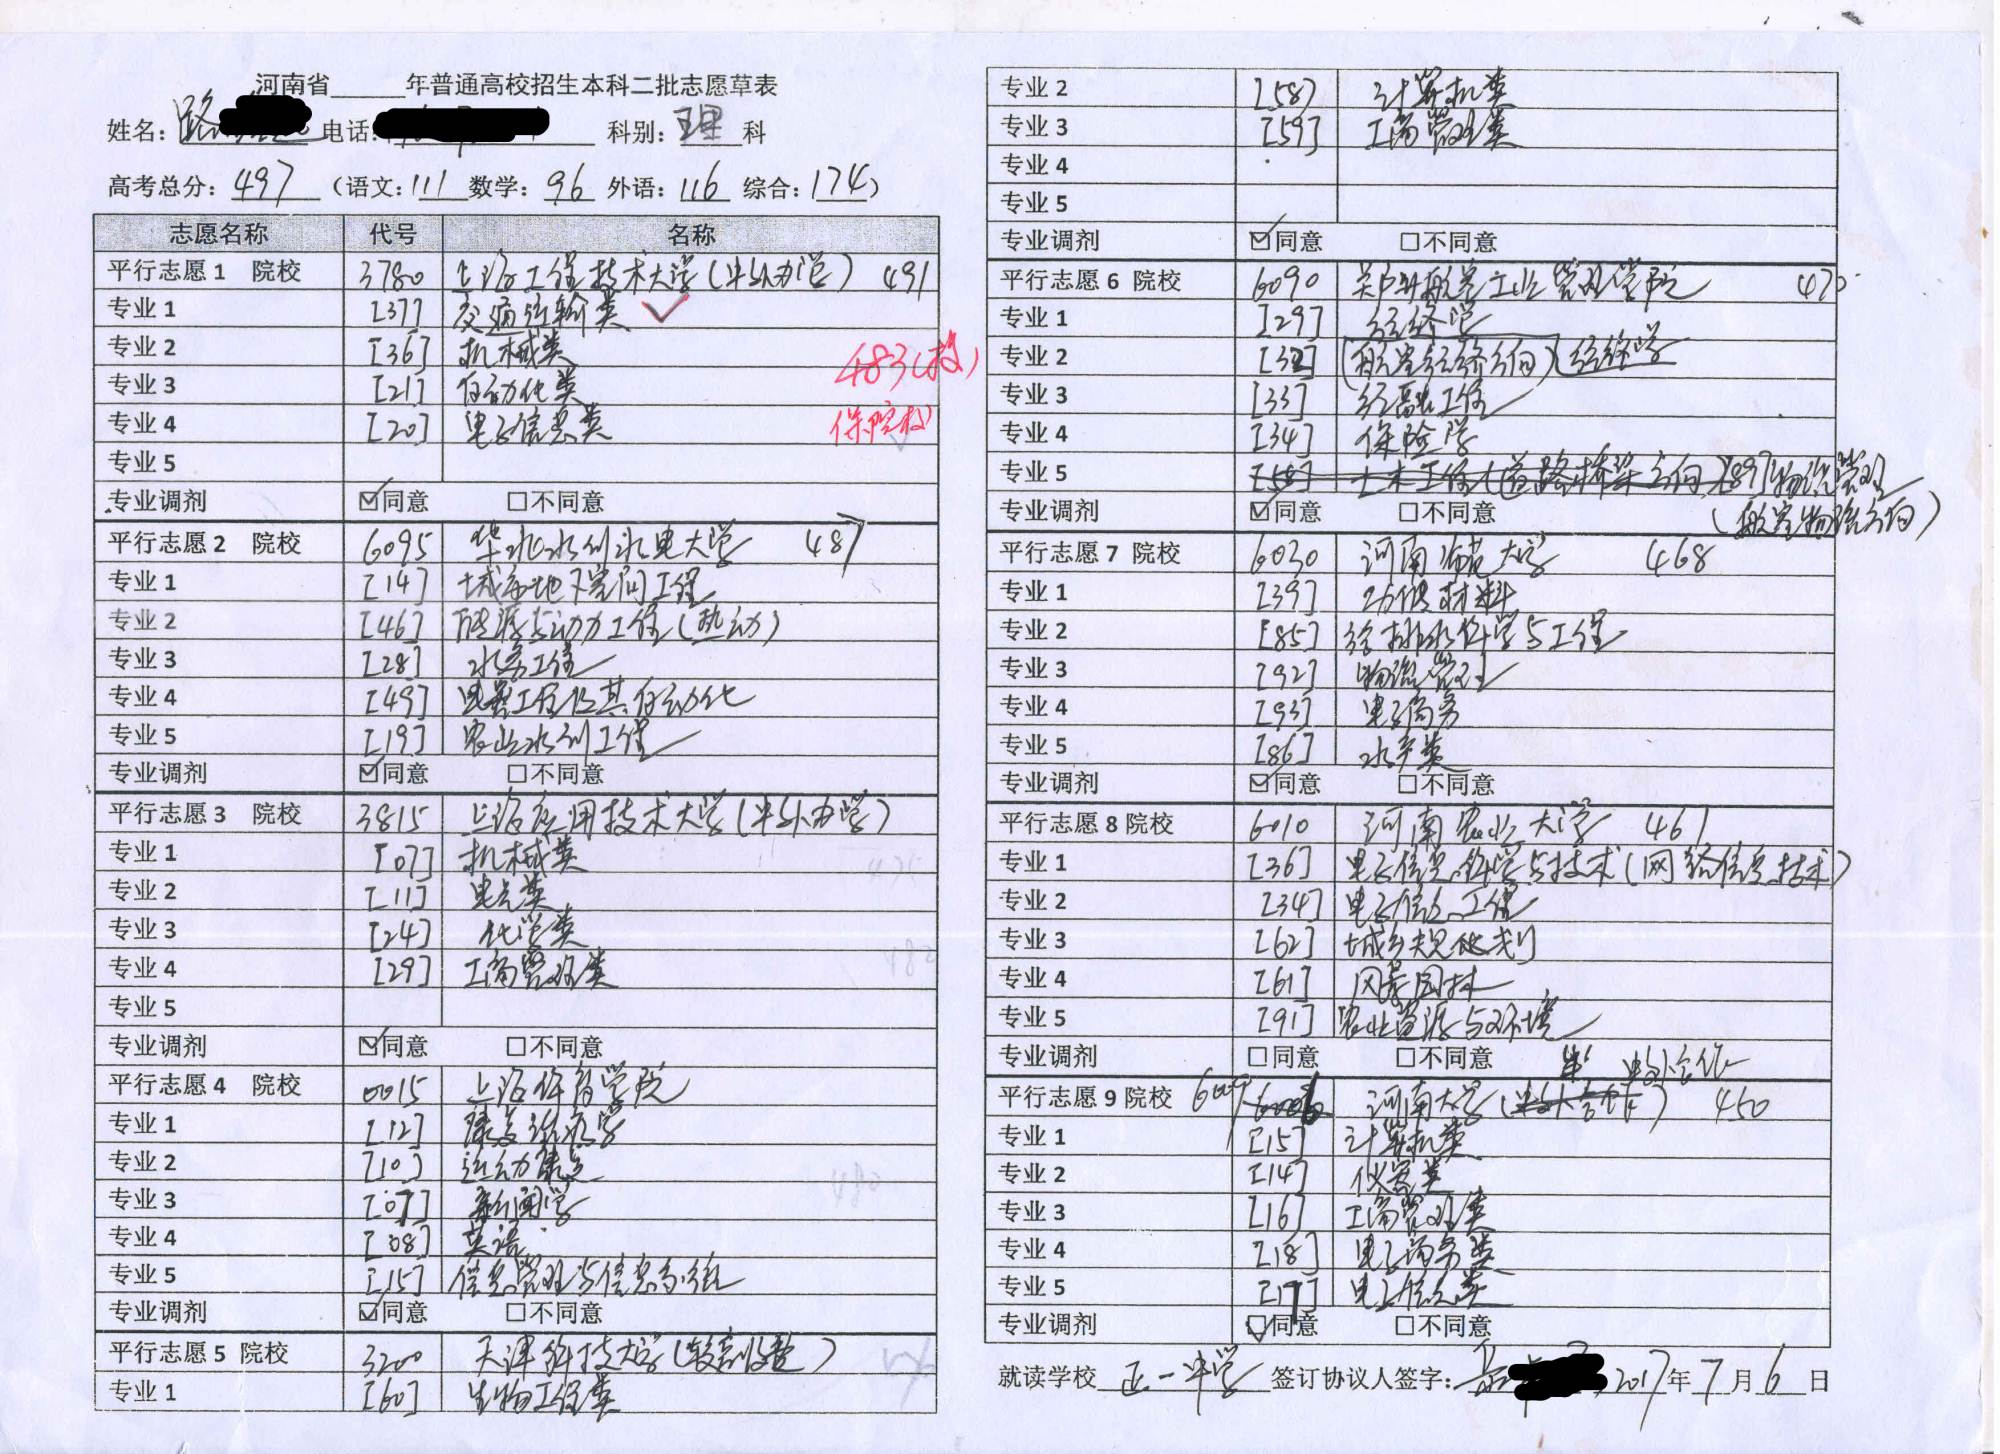 河南省______年普通高校招生本科二批志愿草表
姓名：路 电话： 科别：理 科
高考总分：497 （语文：111 数学：96 外语：116 综合：174）
志愿名称 代号 名称
平行志愿1 院校 3780 上海工程技术大学（中外办学） 491
专业1 [37] 交通运输类 ✓
专业2 [36] 机械类 483（投）
专业3 [21] 自动化类
专业4 [20] 电子信息类 保院校
专业5
专业调剂 ☑同意 □不同意
平行志愿2 院校 6095 华北水利水电大学 487
专业1 [14] 城市地下空间工程
专业2 [46] 能源与动力工程（热动）
专业3 [28] 水务工程
专业4 [49] 电气工程及其自动化
专业5 [19] 农业水利工程
专业调剂 ☑同意 □不同意
平行志愿3 院校 3815 上海应用技术大学（中外办学）
专业1 [07] 机械类
专业2 [11] 电气类
专业3 [24] 化学类
专业4 [29] 工商管理类
专业5
专业调剂 ☑同意 □不同意
平行志愿4 院校 0015 上海体育学院
专业1 [12] 康复治疗学
专业2 [10] 运动康复
专业3 [07] 新闻学
专业4 [08] 英语
专业5 [15] 信息管理与信息系统
专业调剂 ☑同意 □不同意
平行志愿5 院校 3200 天津科技大学（较高收费）
专业1 [60] 生物工程类
专业2 [58] 计算机类
专业3 [59] 工商管理类
专业4
专业5
专业调剂 ☑同意 □不同意
平行志愿6 院校 6090 郑州航空工业管理学院 470
专业1 [29] 经济学
专业2 [32] （航空经济方向）经济学
专业3 [33] 金融工程
专业4 [34] 保险学
专业5 [58] 土木工程（道路桥梁方向） [89]物流管理
专业调剂 ☑同意 □不同意 （航空物流方向）
平行志愿7 院校 6030 河南师范大学 468
专业1 [39] 功能材料
专业2 [85] 给排水科学与工程
专业3 [92] 物流管理
专业4 [93] 电子商务
专业5 [86] 水产类
专业调剂 ☑同意 □不同意
平行志愿8 院校 6010 河南农业大学 461
专业1 [36] 电子信息科学与技术（网络信息技术）
专业2 [34] 电子信息工程
专业3 [62] 城乡规划
专业4 [61] 风景园林
专业5 [91] 农业资源与环境
专业调剂 □同意 □不同意 中外合作
平行志愿9 院校 河南大学 450
专业1 [15] 计算机类
专业2 [14] 仪器类
专业3 [16] 工商管理类
专业4 [18] 电子商务类
专业5 [17] 电子信息类
专业调剂 ☑同意 □不同意
就读学校 正一中学 签订协议人签字： 2017年7月6日